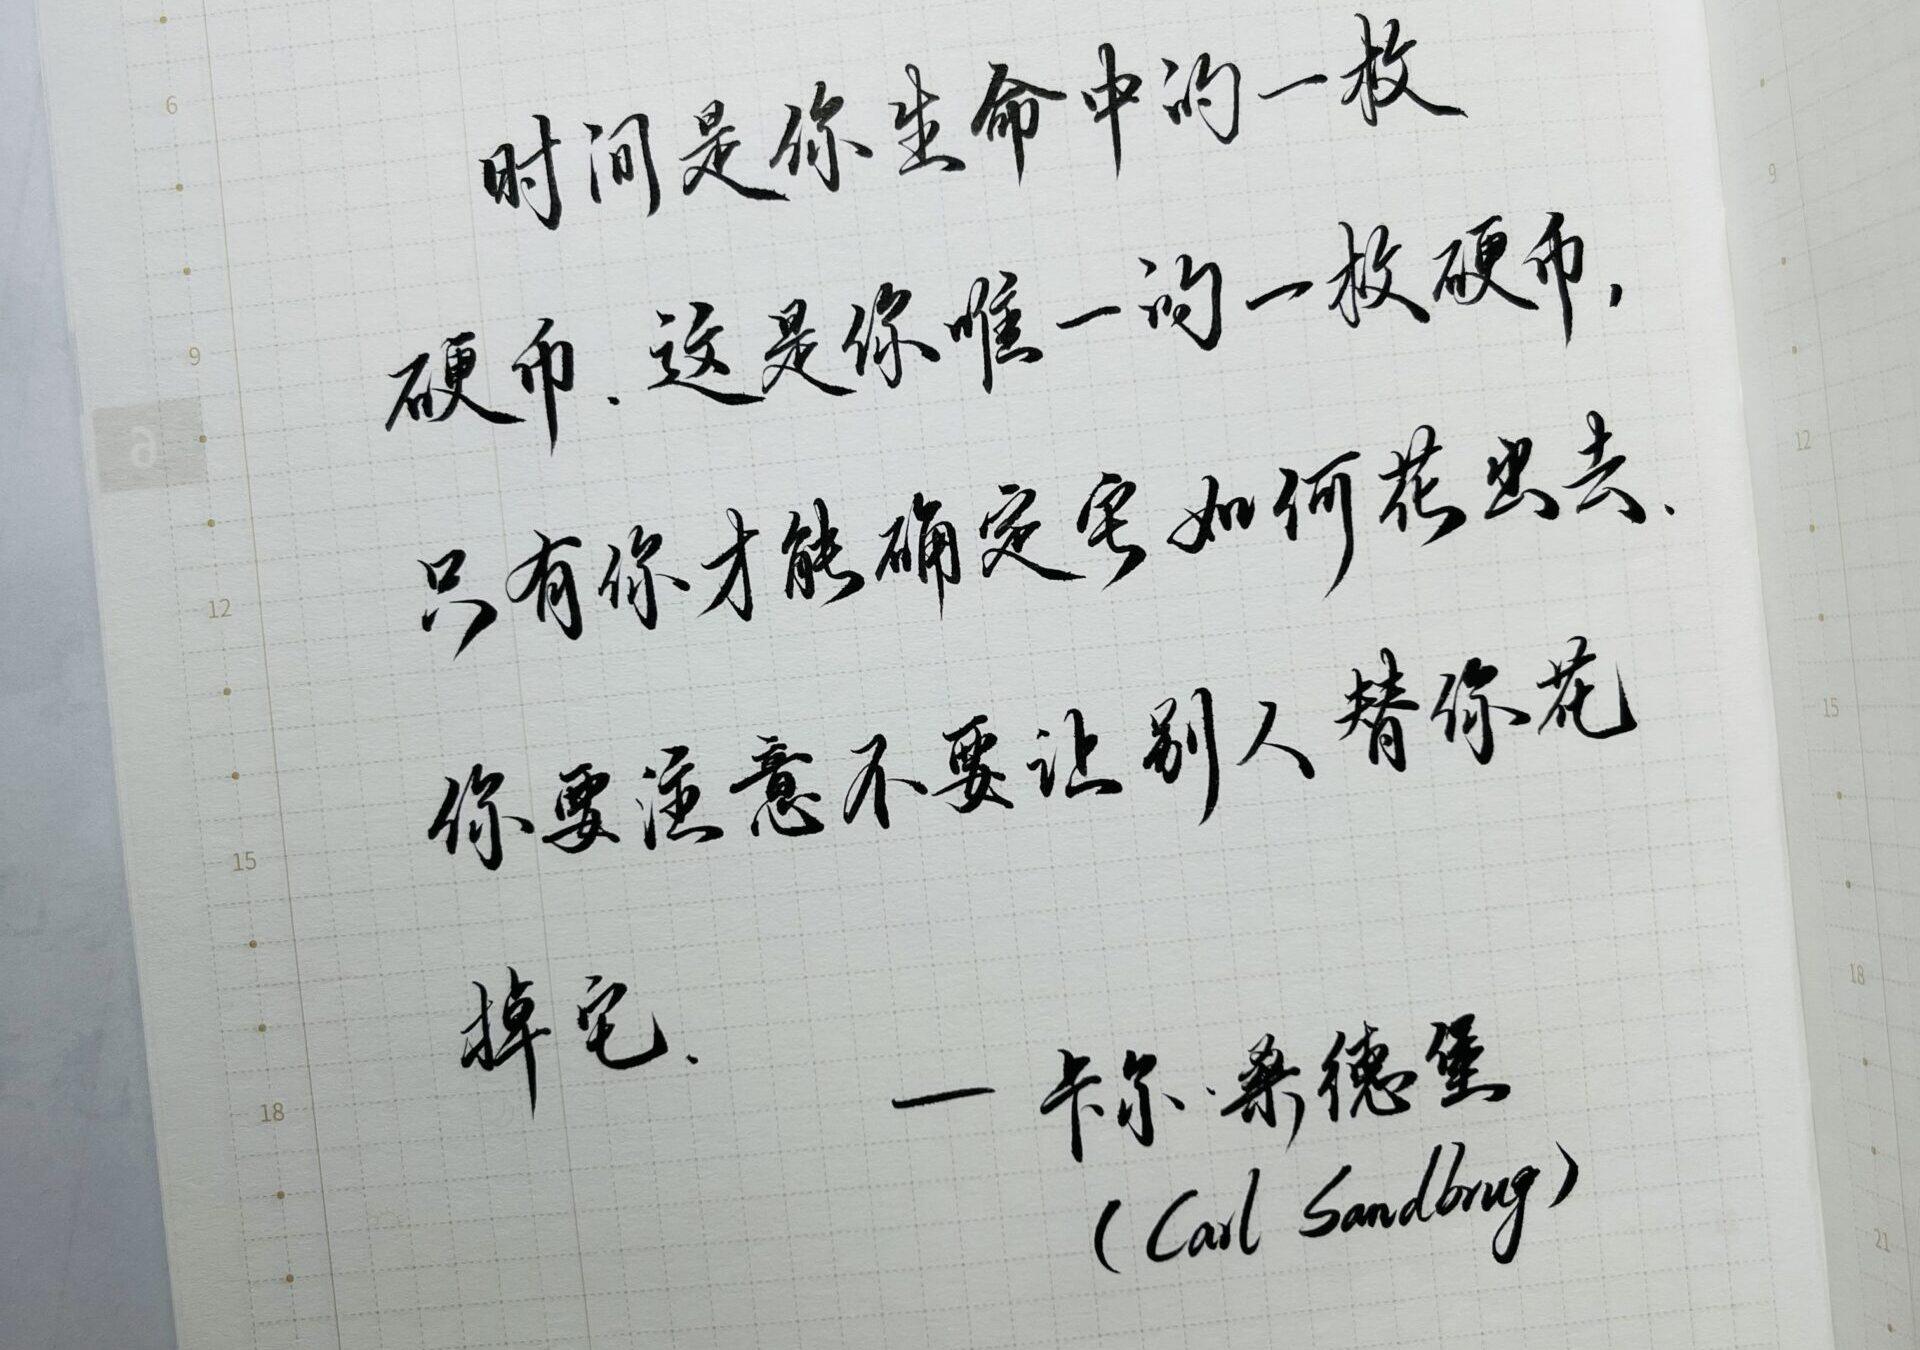 时间是你生命中的一枚
硬币.这是你唯一的一枚硬币,
只有你才能确定它如何花出去.
你要注意不要让别人替你花
掉它.
— 卡尔·桑德堡
(Carl Sandbrug)
6
9
12
15
18
6
9
12
15
18
21